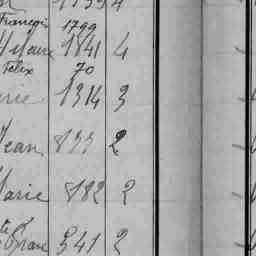 François 1799
Hilaire 1841 4
Felix 70
1314 3
Jean 833 2
Marie 882 2
341 2